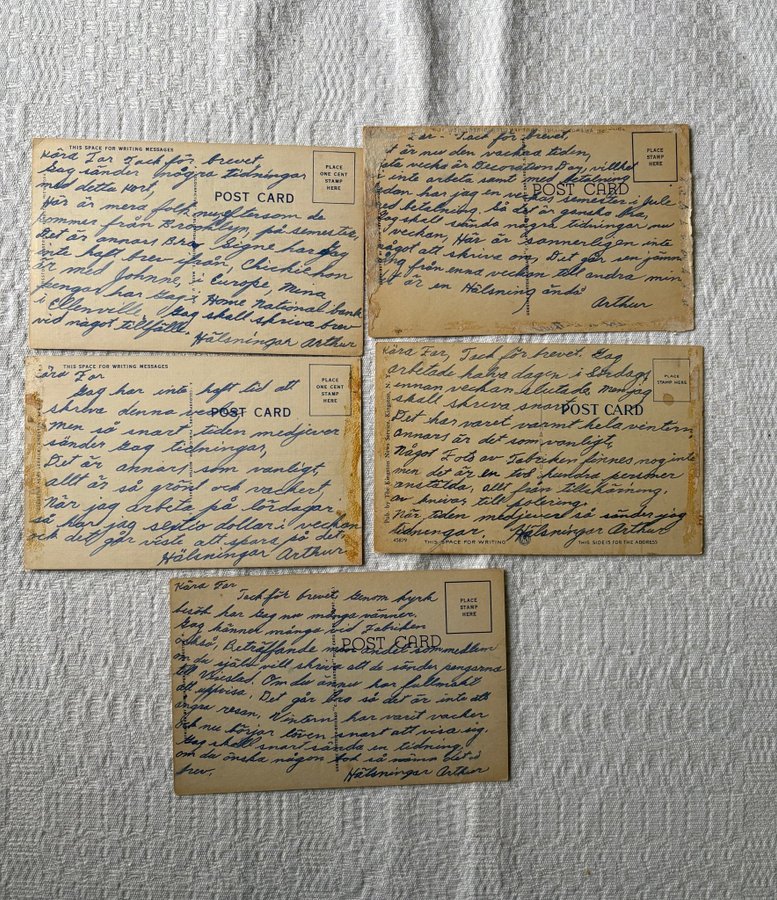 THIS SPACE FOR WRITING MESSAGES
Kära Far Tack för brevet,
Jag sänder några tidningar
med detta kort,
Här är mera folk nu eftersom de
kommer från Brooklyn, på semester,
Det är annars Bra, Signe har jag
inte haft brev ifrån, Chickie hon
är med Johnne, i Europe, Mina
pengar har jag i Home National bank
i Ellenville, Jag skall skriva brev
vid något tillfälle
Hälsningar Arthur
POST CARD
PLACE
ONE CENT
STAMP
HERE
Far - Tack för brevet,
t är nu den vackra tiden,
sta vecka är Decoration Day, vilket
i inte arbeta samt med betalning
sedan har jag en veckas semester i Juli
med betalning, så det är ganska bra,
Jag skall sända några tidningar nu
veckan, Här är sannerligen inte
något att skriva om, Det går en jämn
gång från enna veckan till andra min
är en Hälsning ändå
Arthur
POST CARD
PLACE
STAMP
HERE
THIS SPACE FOR WRITING MESSAGES
Kära Far
Jag har inte haft tid att
skriva denna veckan
men så snart tiden medjever
sänder jag tidningar,
Det är annars som vanligt,
allt är så grönt och vackert,
När jag arbeta på lördagar,
så har jag sextio dollar i veckan
och det går väste att spara på det
Hälsningar Arthur
POST CARD
PLACE
ONE CENT
STAMP
HERE
Kära Far, Tack för brevet. Jag
arbetade halva dagen i Söndags
innan veckan slutade, men jag
skall skriva snart.
Det har varet varmt hela vintern,
annars är det som vanligt,
Något Foto av Fabriken finnes nog inte
men det är en två hundra personer
anstälda, allt från tillskärning,
av knivar till polering,
När tiden medjever så sänder jag
tidningar. Hälsningar Arthur
POST CARD
PLACE
STAMP HERE
Pub. by The Kingston News Service, Kingston, N. Y.
45679 THIS SPACE FOR WRITING THIS SIDE IS FOR THE ADDRESS
Kära Far
Tack för brevet Genom kyrk
besök har jag nu många vänner.
Jag känner många vid Fabriken
också, Beträffande som medlem
om du själv vill skriva att de sänder pengarna
till Om du ännu har fullmakt
att uppvisa, Det går bra så det är inte att
ångra resan, Vintern har varit vacker
och nu börjar löven snart att visa sig.
Jag skall snart sända en tidning,
om du önska någon bok så nämn det i
brev. Hälsningar Arthur
POST CARD
PLACE
STAMP
HERE